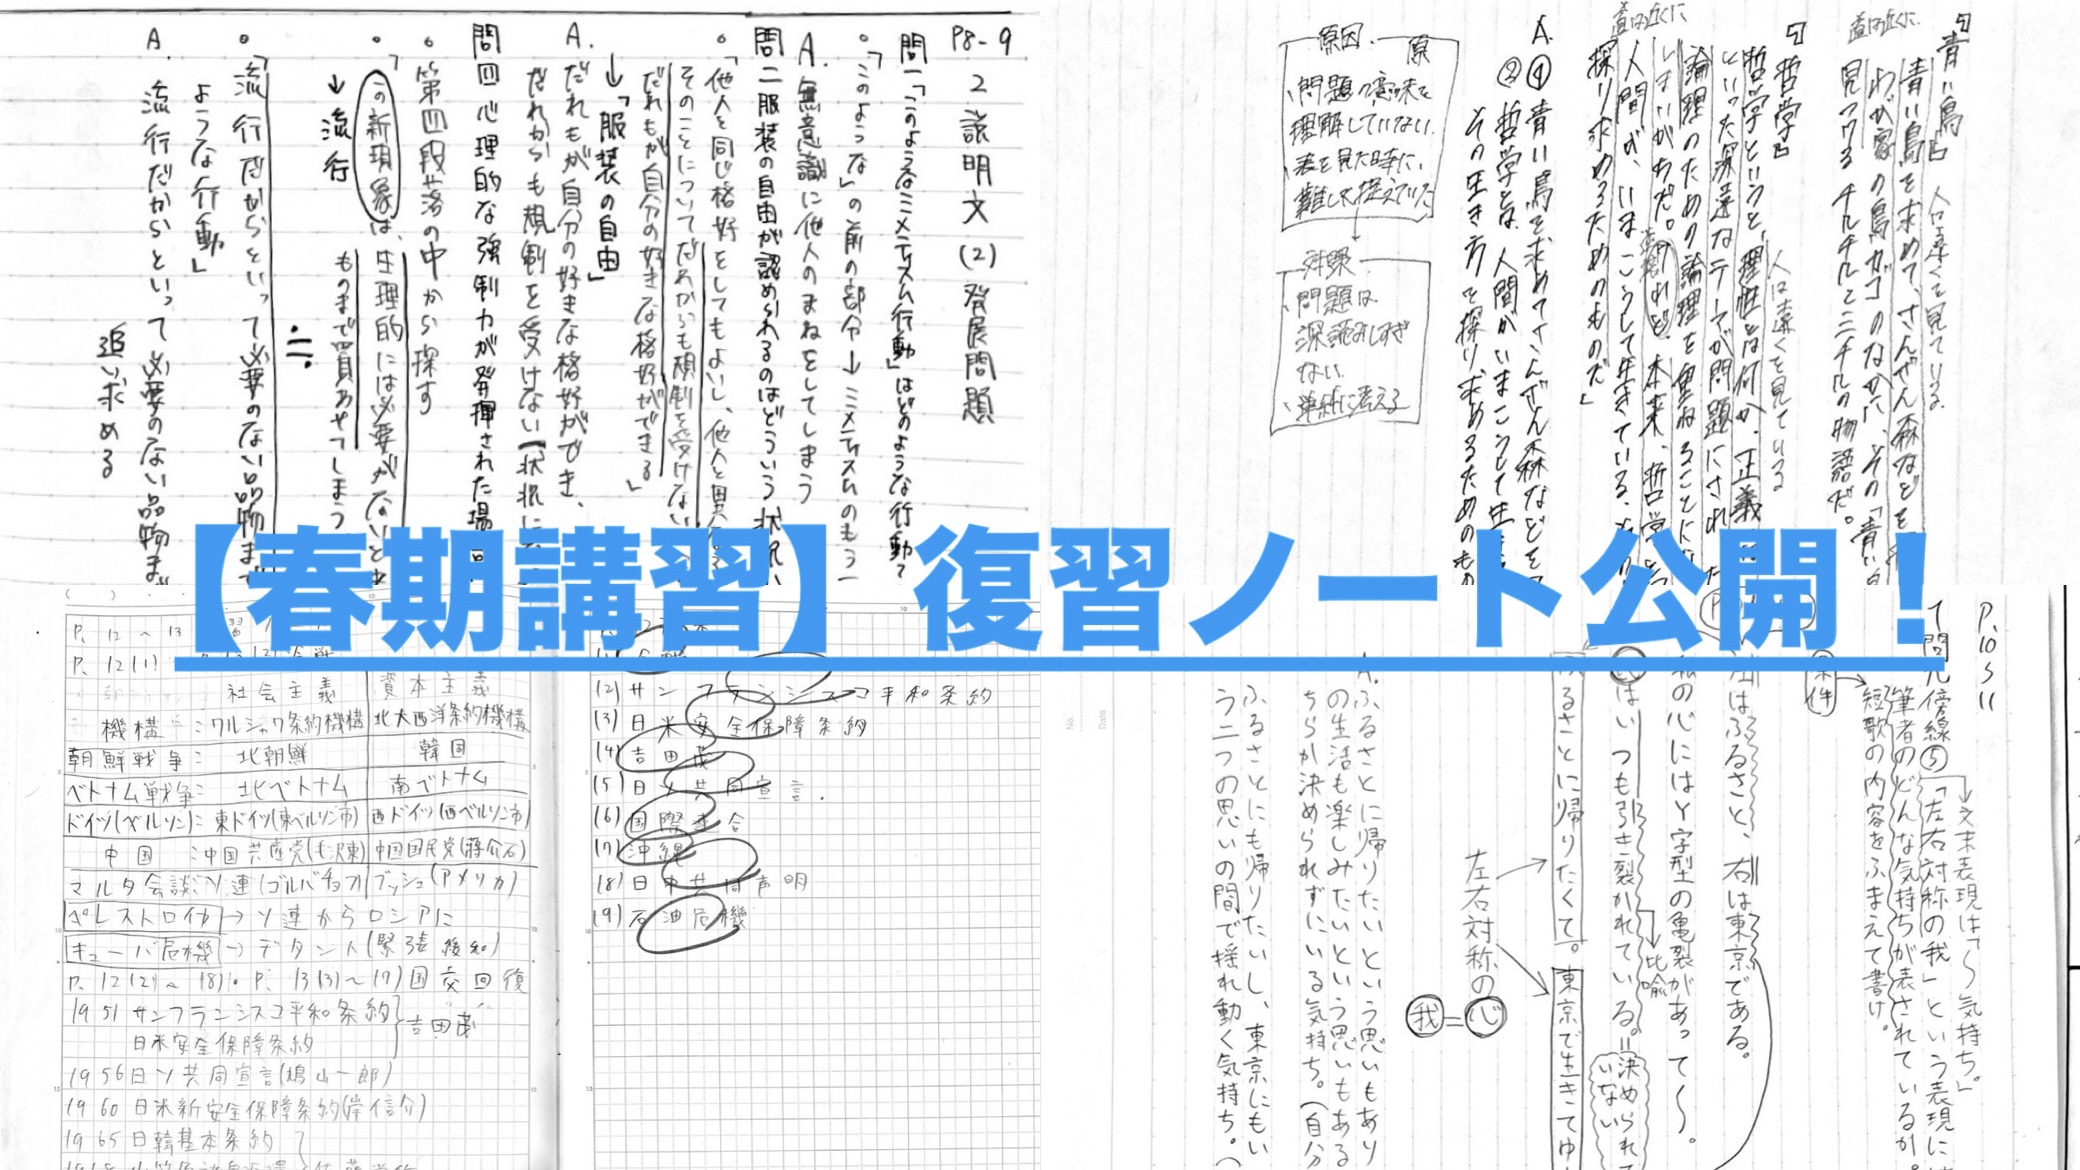 【春期講習】復習ノート公開！
P8-9 2 説明文(2)発展問題
問一「このようなミメティスム行動」はどのような行動で
。「このような」の前の部分→ミメティスムのもう一
A. 無意識に他人のまねをしてしまう
問二 服装の自由が認められるのはどういう状況
。「他人と同じ格好をしてもよいし、他人と異なる
そのことについてだれからも規制を受けない
だれもが自分の好きな格好ができる」
↓「服装の自由」
A. だれもが自分の好きな格好ができ、
だれからも規制を受けない(状況に
問四 心理的な強制力が発揮された場
。第四段落の中から探す
。「この新現象は、生理的には必要がないと
↓流行
ものまで買わせてしまう
≒
。「流行だからといって必要のない品物まで
ような行動」
A. 流行だからといって必要のない品物まで
追い求める
青い鳥 人は遠くを見ている
直後近くに
青い鳥を求めて、さんざん森などを
わが家の鳥カゴのなかに、その「青い鳥
見つける チルチルとミチルの物語だ。
哲学 人は遠くを見ている
直後近くに
哲学というと、理性とは何か、正義
といった深遠なテーマが問題にされ
論理のための論理を重ねることに
しまいがちだ。けれど、本来、哲学と
人間が、いまこうして生きている、その
探り求めるためのものだ」
A. ① 青い鳥を求めてさんざん森などを
② 哲学とは、人間がいまこうして生き
その生き方を探り求めるためのもの
原因
、問題の意味を
理解していない
、表を見た時に、
難しく捉えていた
対策
、問題は
深読みしすぎ
ない
、単純に考える
P. 12 〜 13
P. 12(1)
社会主義 資本主義
機構 : ワルシャワ条約機構 北大西洋条約機構
朝鮮戦争 : 北朝鮮 韓国
ベトナム戦争 : 北ベトナム 南ベトナム
ドイツ(ベルリン) : 東ドイツ(東ベルリン市) 西ドイツ(西ベルリン市)
中国 : 中国共産党(毛沢東) 中国国民党(蔣介石)
マルタ会談 : ソ連(ゴルバチョフ) ブッシュ(アメリカ)
ペレストロイカ → ソ連からロシアに
キューバ危機 → デタント(緊張緩和)
P. 12(2)〜(8)。P. 13(3)〜(7) 国交回復
1951 サンフランシスコ平和条約
日米安全保障条約
吉田茂
1956 日ソ共同宣言(鳩山一郎)
1960 日米新安全保障条約(岸信介)
1965 日韓基本条約
(2) サンフランシスコ平和条約
(3) 日米安全保障条約
(4) 吉田茂
(5) 日ソ共同宣言.
(6) 国際連合
(7) 沖縄
(8) 日中共同声明
(9) 石油危機
No.
Date
P. 10 〜 11
→文末表現は「〜気持ち。」
問九 傍線⑤「左右対称の我」という表現には
筆者のどんな気持ちが表されているか。
短歌の内容をふまえて書け。
条件
左はふるさと、右は東京である。
私の心にはY字型の亀裂があって〜。
→比喩
心はいつも引き裂かれている。=決められて
いない
ふるさとに帰りたくて。東京で生きてゆ
左右対称の
我=心
A. ふるさとに帰りたいという思いもあり
の生活も楽しみたいという思いもある
ちらか決められずにいる気持ち。(自分
ふるさとにも帰りたいし、東京にもい
う二つの思いの間で揺れ動く気持ち。(